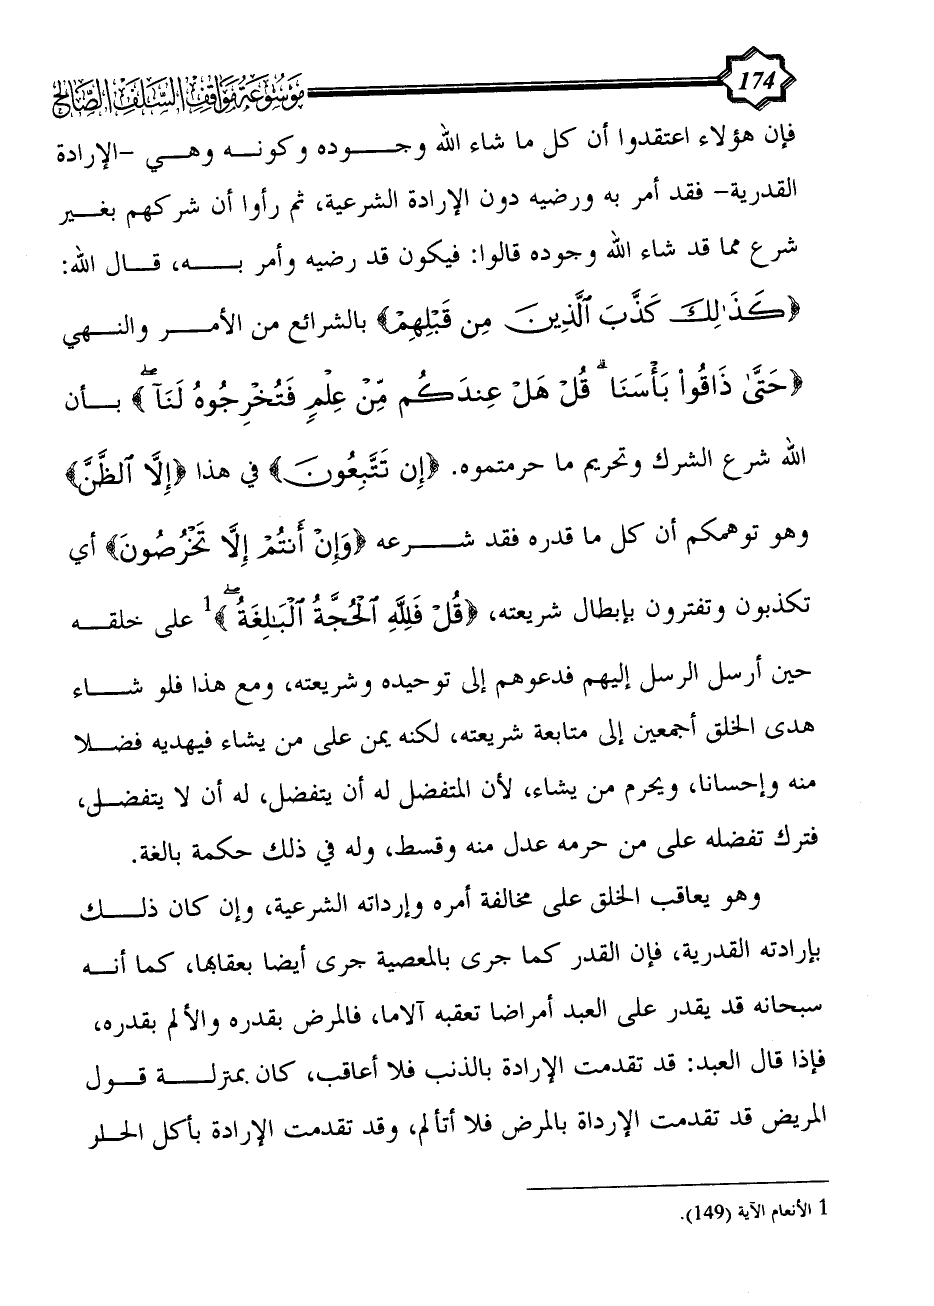 174
موسوعة مواقف السلف الصالح
فإن هؤلاء اعتقدوا أن كل ما شاء الله وجـــوده وكونـه وهـي -الإرادة
القدرية- فقد أمر به ورضيه دون الإرادة الشرعية، ثم رأوا أن شركهم بغـير
شرع مما قد شاء الله وجوده قالوا: فيكون قد رضيه وأمر بـــه، قـال الله:
﴿كَذَٰلِكَ كَذَّبَ ٱلَّذِينَ مِن قَبْلِهِمْ﴾ بالشرائع من الأمـر والنـهي
﴿حَتَّىٰ ذَاقُوا۟ بَأْسَنَا ۗ قُلْ هَلْ عِندَكُم مِّنْ عِلْمٍ فَتُخْرِجُوهُ لَنَآ ۖ﴾ بـأن
الله شرع الشرك وتحريم ما حرمتموه. ﴿إِن تَتَّبِعُونَ﴾ في هذا ﴿إِلَّا ٱلظَّنَّ﴾
وهو توهمكم أن كل ما قدره فقد شـــرعه ﴿وَإِنْ أَنتُمْ إِلَّا تَخْرُصُونَ﴾ أي
تكذبون وتفترون بإبطال شريعته، ﴿قُلْ فَلِلَّهِ ٱلْحُجَّةُ ٱلْبَـٰلِغَةُ ۖ﴾1 على خلقـه
حين أرسل الرسل إليهم فدعوهم إلى توحيده وشريعته، ومع هذا فلو شـاء
هدى الخلق أجمعين إلى متابعة شريعته، لكنه يمن على من يشاء فيهديه فضـلا
منه وإحسانا، ويحرم من يشاء، لأن المتفضل له أن يتفضل، له أن لا يتفضـل،
فترك تفضله على من حرمه عدل منه وقسط، وله في ذلك حكمة بالغة.
وهو يعاقب الخلق على مخالفة أمره وإرداته الشرعية، وإن كان ذلـك
بإرادته القدرية، فإن القدر كما جرى بالمعصية جرى أيضا بعقابها، كما أنـه
سبحانه قد يقدر على العبد أمراضا تعقبه آلاما، فالمرض بقدره والألم بقدره،
فإذا قال العبد: قد تقدمت الإرادة بالذنب فلا أعاقب، كان بمنزلـة قـول
المريض قد تقدمت الإرداة بالمرض فلا أتألم، وقد تقدمت الإرادة بأكل الحلـر
1 الأنعام الآية (149).